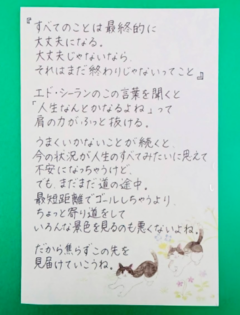 『すべてのことは最終的に
大丈夫になる。
大丈夫じゃないなら、
それはまだ終わりじゃないってこと。』
エド・シーランのこの言葉を聞くと
「人生なんとかなるよね」って
肩の力がふっと抜ける。
うまくいかないことが続くと、
今の状況が人生のすべてみたいに思えて
不安になっちゃうけど、
でも、まだまだ道の途中。
最短距離でゴールしちゃうより、
ちょっと寄り道をして
いろんな景色を見るのも悪くないよね。
だから焦らずこの先を
見届けていこうね。